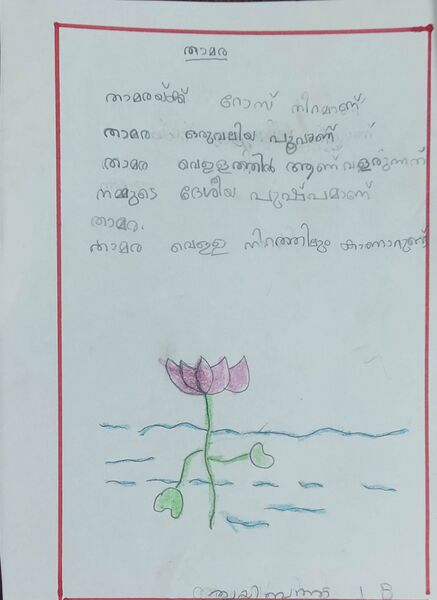 താമര
താമരയ്ക്ക് റോസ് നിറമാണ്
താമര ഒരുവലിയ പൂവാണ്
താമര വെള്ളത്തിൽ ആണ് വളരുന്നത്
നമ്മുടെ ദേശീയ പുഷ്പമാണ്
താമര.
താമര വെള്ള നിറത്തിലും കാണാറുണ്ട്
1 B